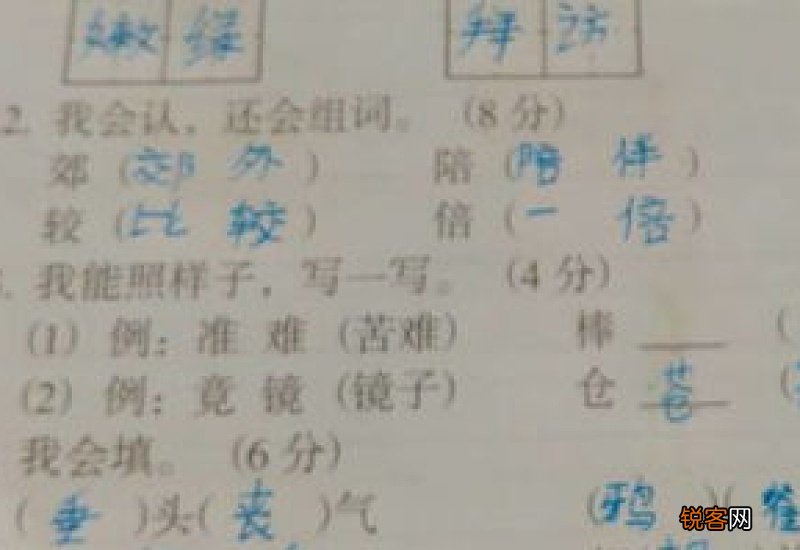 嫩 绿 拜 访
2. 我会认，还会组词。（8 分）
郊（郊 外） 陪（陪 伴）
较（比 较） 倍（一 倍）
. 我能照样子，写一写。（4 分）
(1) 例：准 难（苦难） 棒 （
(2) 例：竟 镜（镜子） 仓 苍 （
我会填。（6 分）
（垂）头（丧）气 （鸦）（雀
锐客网